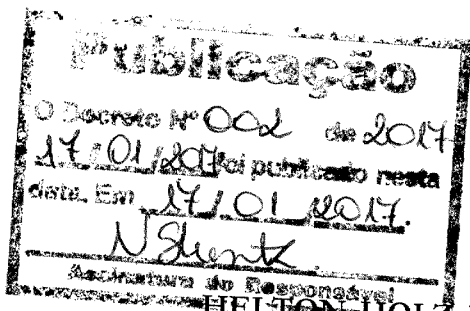 Publicação
O Decreto Nº 002 de 2017
17/01/2017 foi publicado nesta
data. Em 17/01/2017.
Assinatura do Responsável
HELTON HOLZ